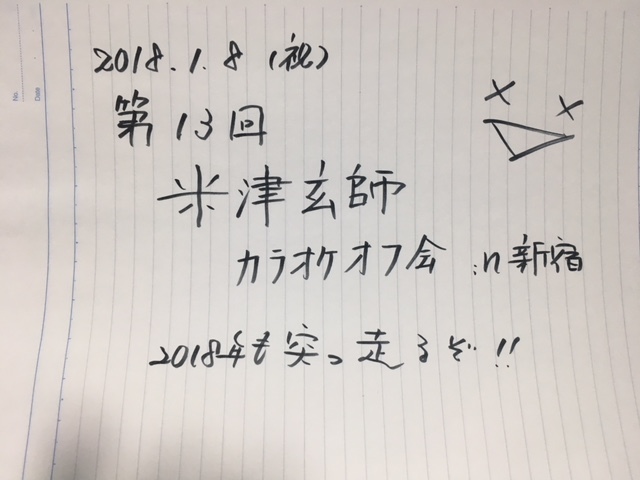 No.
Date
2018.1.8(祝)
第13回
米津玄師
カラオケオフ会 in新宿
2018年も突っ走るぞ!!